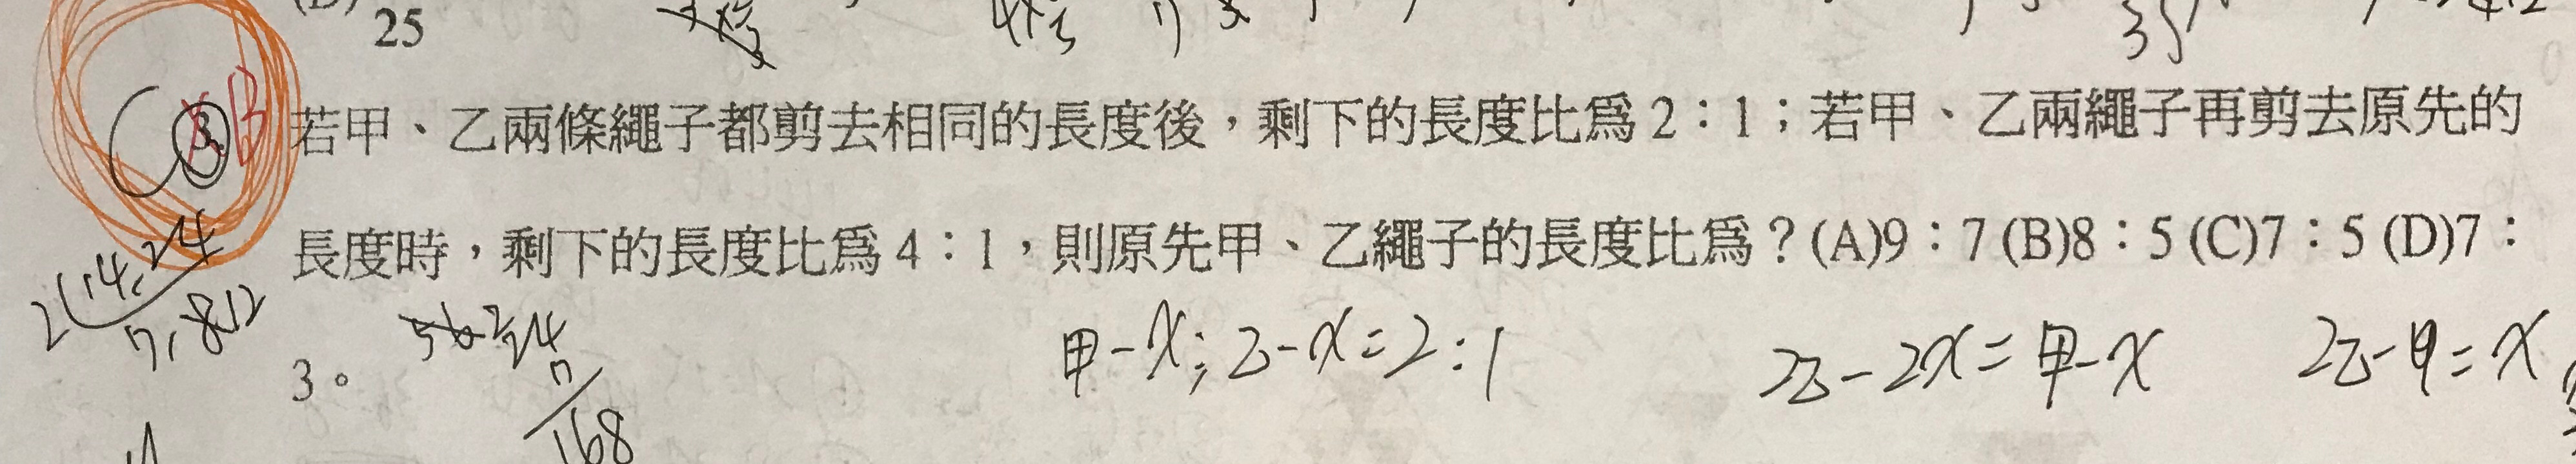 25
B 若甲、乙兩條繩子都剪去相同的長度後，剩下的長度比爲 2：1；若甲、乙兩繩子再剪去原先的
長度時，剩下的長度比爲 4：1，則原先甲、乙繩子的長度比爲？(A)9：7 (B)8：5 (C)7：5 (D)7：
3。
甲-x：乙-x=2：1
2乙-2x=甲-x
2乙-甲=x
14.24
7.812
24
7
168